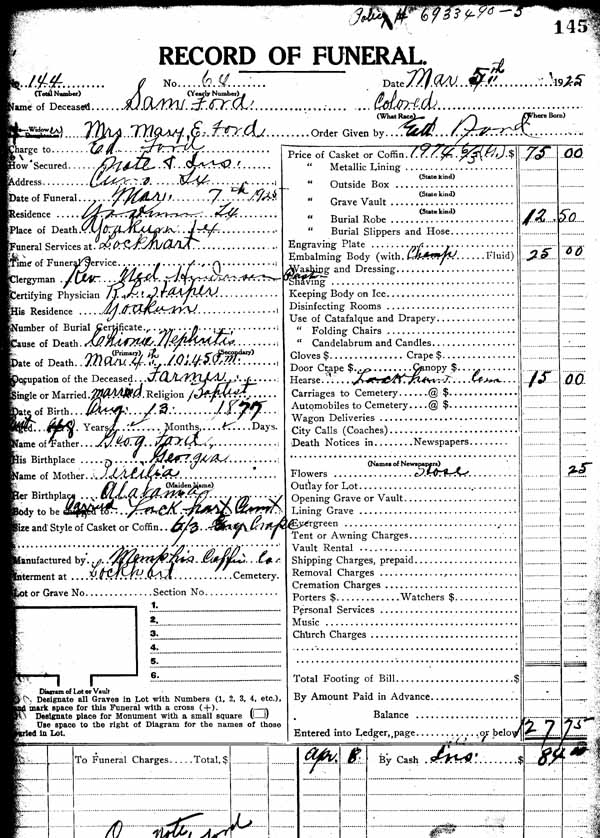 Policy # 6933490-5
145
RECORD OF FUNERAL.
No. 144 No. 64 Date Mar 5th 1925
(Total Number) (Yearly Number)
Name of Deceased Sam Ford Colored
(What Race) (Where Born)
Widow Mrs Mary E. Ford Order Given by Ed Ford
Charge to Ed Ford
How Secured Note & Ins.
Address Cuero Tx
Date of Funeral Mar. 7th 1925
Residence Yoakum Tx
Place of Death Yoakum Tx
Funeral Services at Lockhart
Time of Funeral Service
Clergyman Rev. Ned Henderson
Certifying Physician Harper
His Residence Yoakum
Number of Burial Certificate
Cause of Death Chronic Nephritis
(Primary) (Secondary)
Date of Death Mar 4th, 10:45 M.
Occupation of the Deceased Farmer
Single or Married married Religion Baptist
Date of Birth Aug. 13 1877
Aged 48 Years Months Days.
Name of Father Georg Ford
His Birthplace Georgia
Name of Mother
(Maiden Name)
Her Birthplace Alabama
Body to be to Lockhart
Size and Style of Casket or Coffin 6/3 Gray Crape
Manufactured by Memphis Coffin Co.
Interment at Lockhart Cemetery.
Lot or Grave No. Section No.
1.
2.
3.
4.
5.
6.
Diagram of Lot or Vault
Designate all Graves in Lot with Numbers (1, 2, 3, 4, etc.),
and mark space for this Funeral with a cross (+).
Designate place for Monument with a small square (□)
Use space to the right of Diagram for the names of those
buried in Lot.
Price of Casket or Coffin 1974 6/3 $ 75 00
" Metallic Lining
(State kind)
" Outside Box
(State kind)
" Grave Vault
(State kind)
" Burial Robe 12 50
" Burial Slippers and Hose
Engraving Plate
Embalming Body (with Champ Fluid) 25 00
Washing and Dressing
Shaving
Keeping Body on Ice
Disinfecting Rooms
Use of Catafalque and Drapery
" Folding Chairs
" Candelabrum and Candles
Gloves $ Crape $
Door Crape $ Canopy $
Hearse Lockhart Cem 15 00
Carriages to Cemetery @ $
Automobiles to Cemetery @ $
Wagon Deliveries
City Calls (Coaches)
Death Notices in Newspapers
(Names of Newspapers)
Flowers 25
Outlay for Lot
Opening Grave or Vault
Lining Grave
Evergreen
Tent or Awning Charges
Vault Rental
Shipping Charges, prepaid
Removal Charges
Cremation Charges
Porters $ Watchers $
Personal Services
Music
Church Charges
Total Footing of Bill $
By Amount Paid in Advance
Balance
Entered into Ledger, page or below 127 75
To Funeral Charges Total, $ Apr. 8. By Cash Ins. $ 84 00
note, Ford